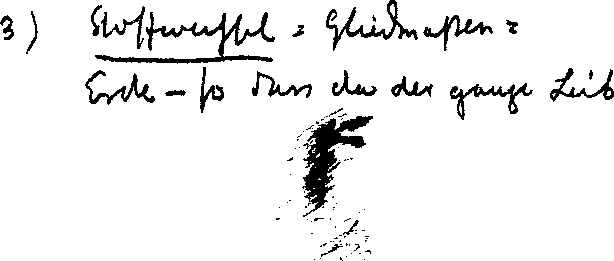 3) Stoffwechsel = Gliedmaßen =
Erde – so dass da der ganze Leib